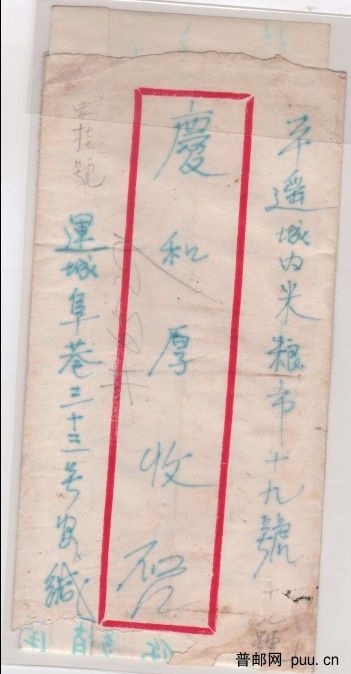 平遥城内米粮市十九號
慶和厚收啓
運城阜巷三十三号安缄
單挂號
普邮网 puu.cn